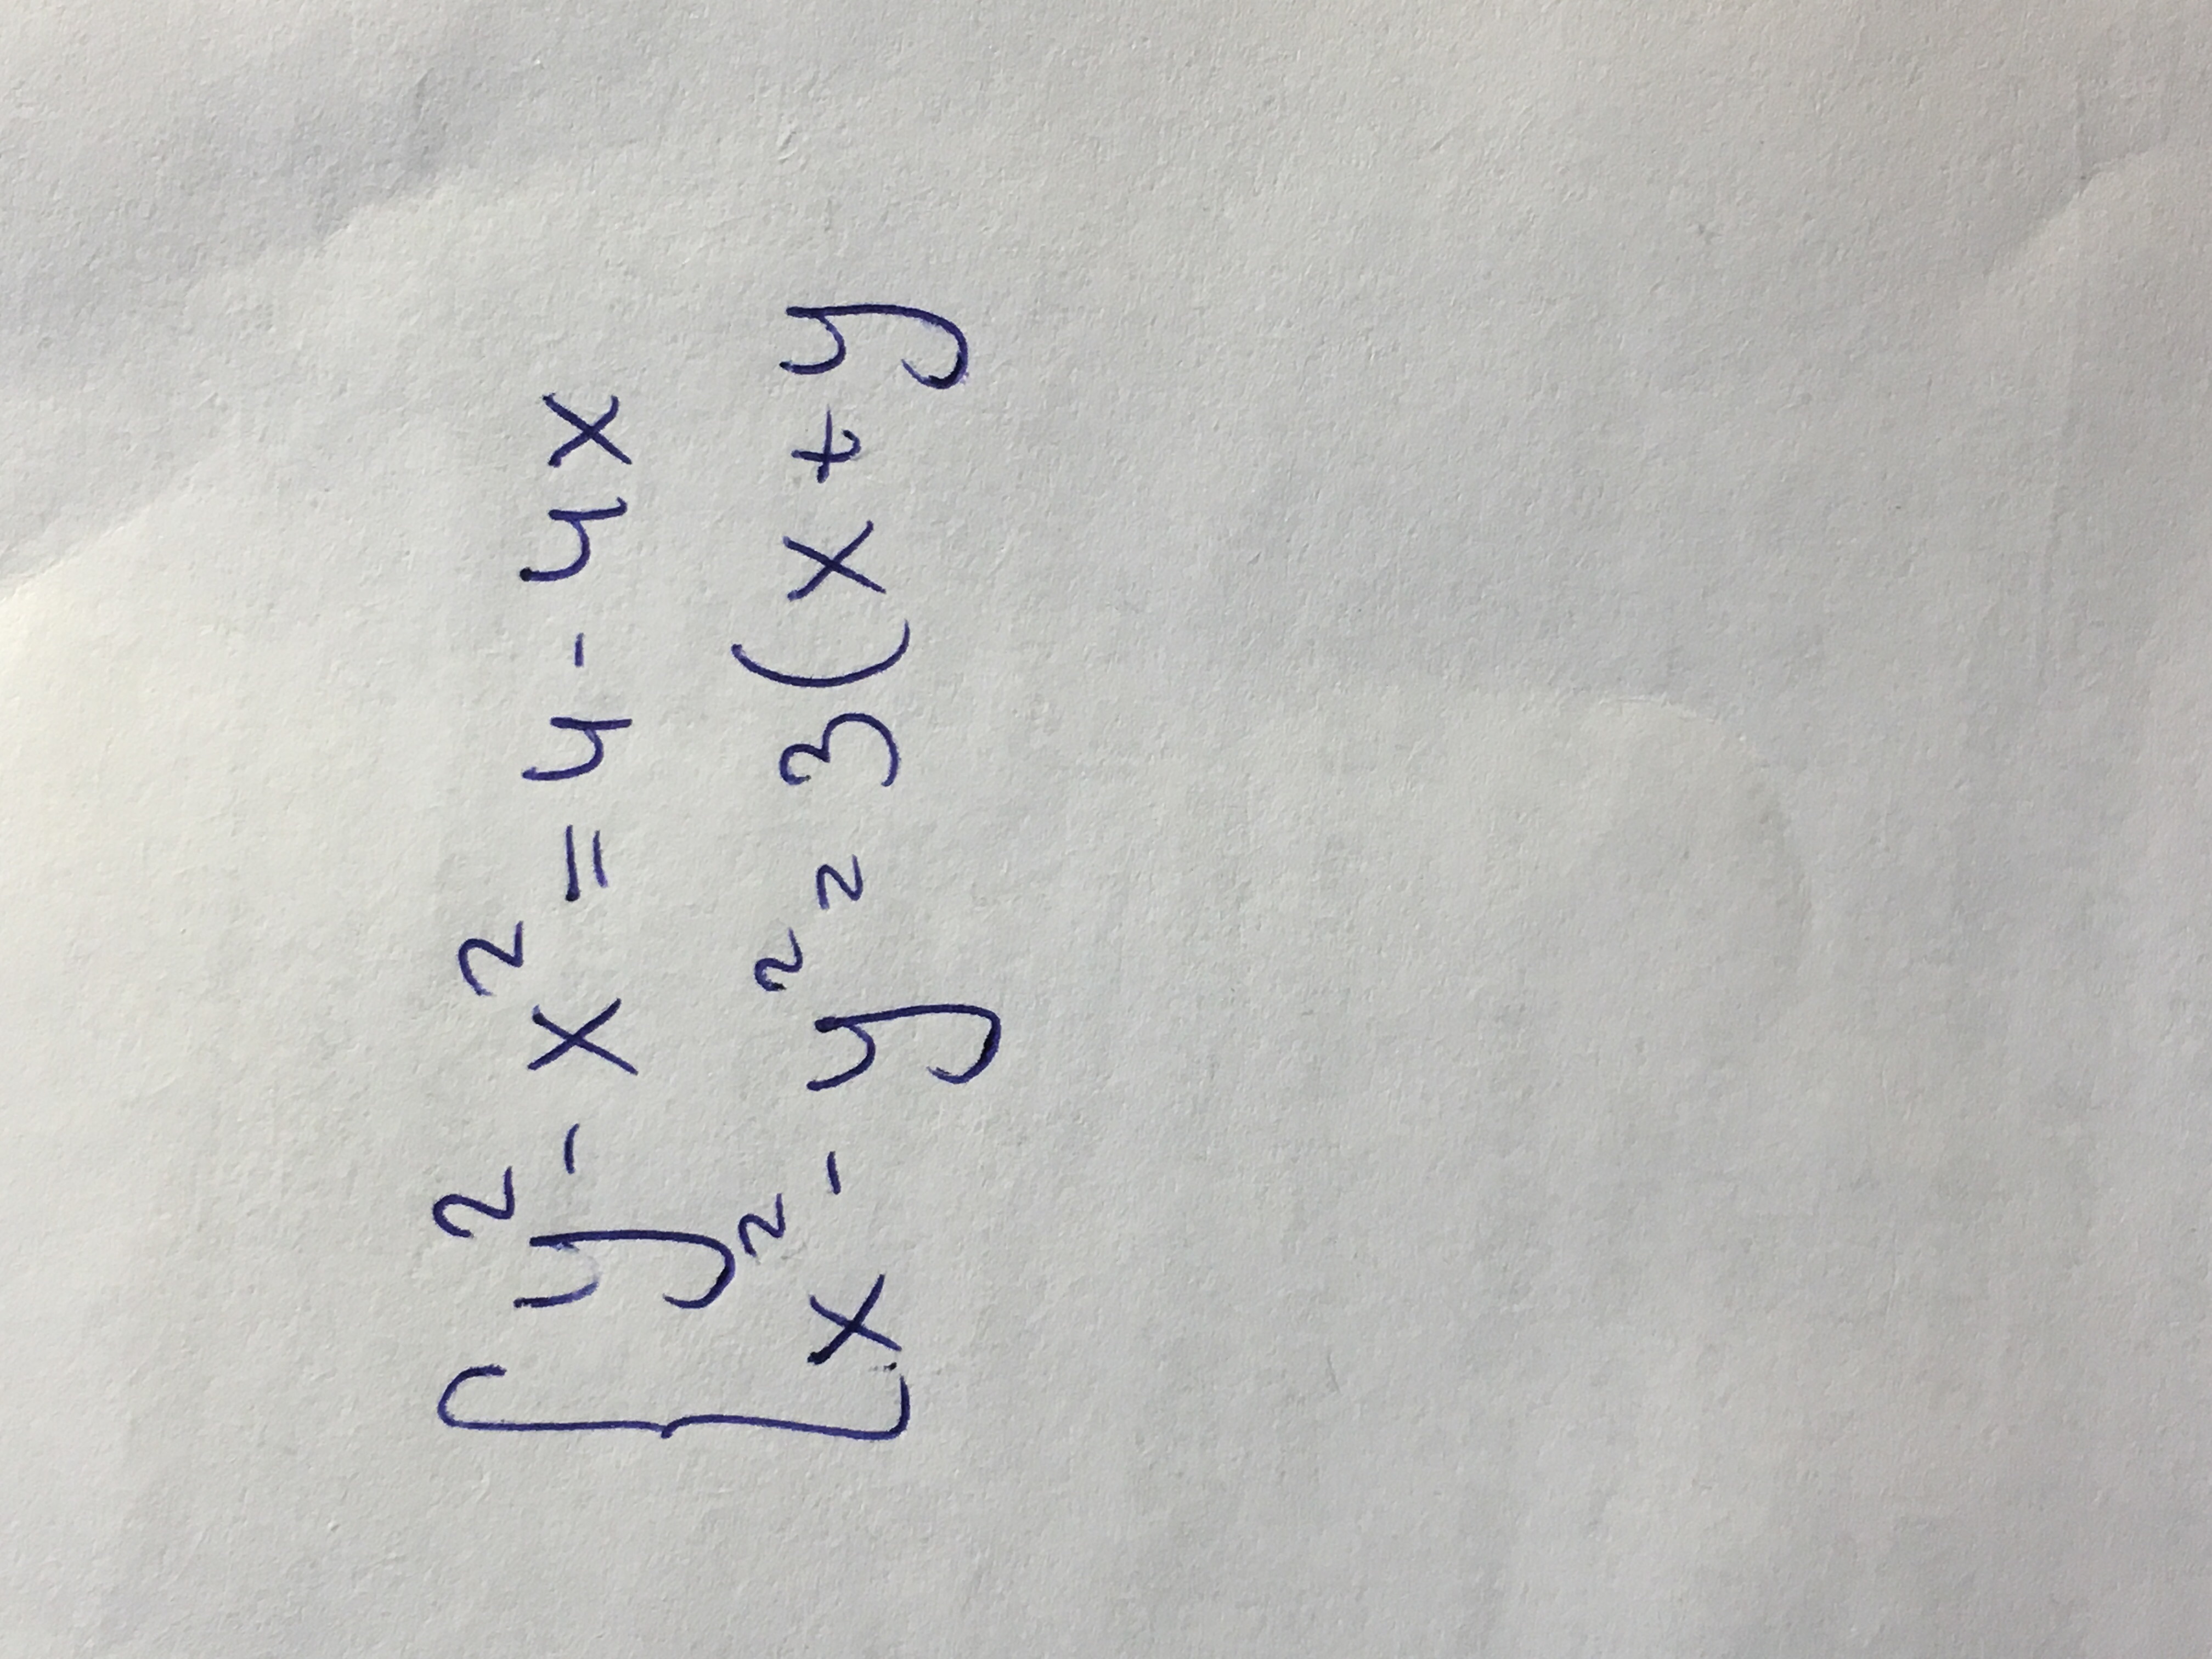 y² - x² = 4 - 4x
x² - y² = 3(x + y